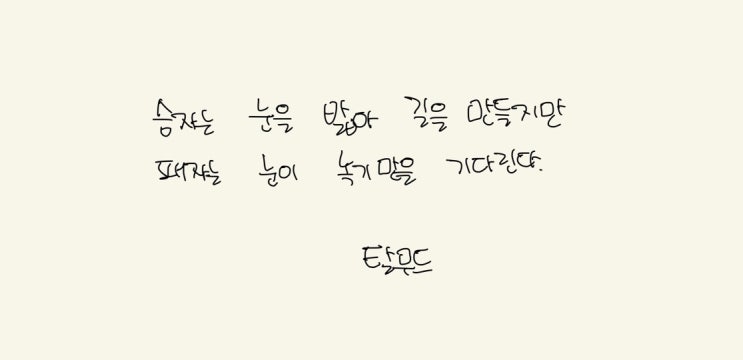 승자는 눈을 밟아 길을 만들지만
패자는 눈이 녹기만을 기다린다.
탈무드